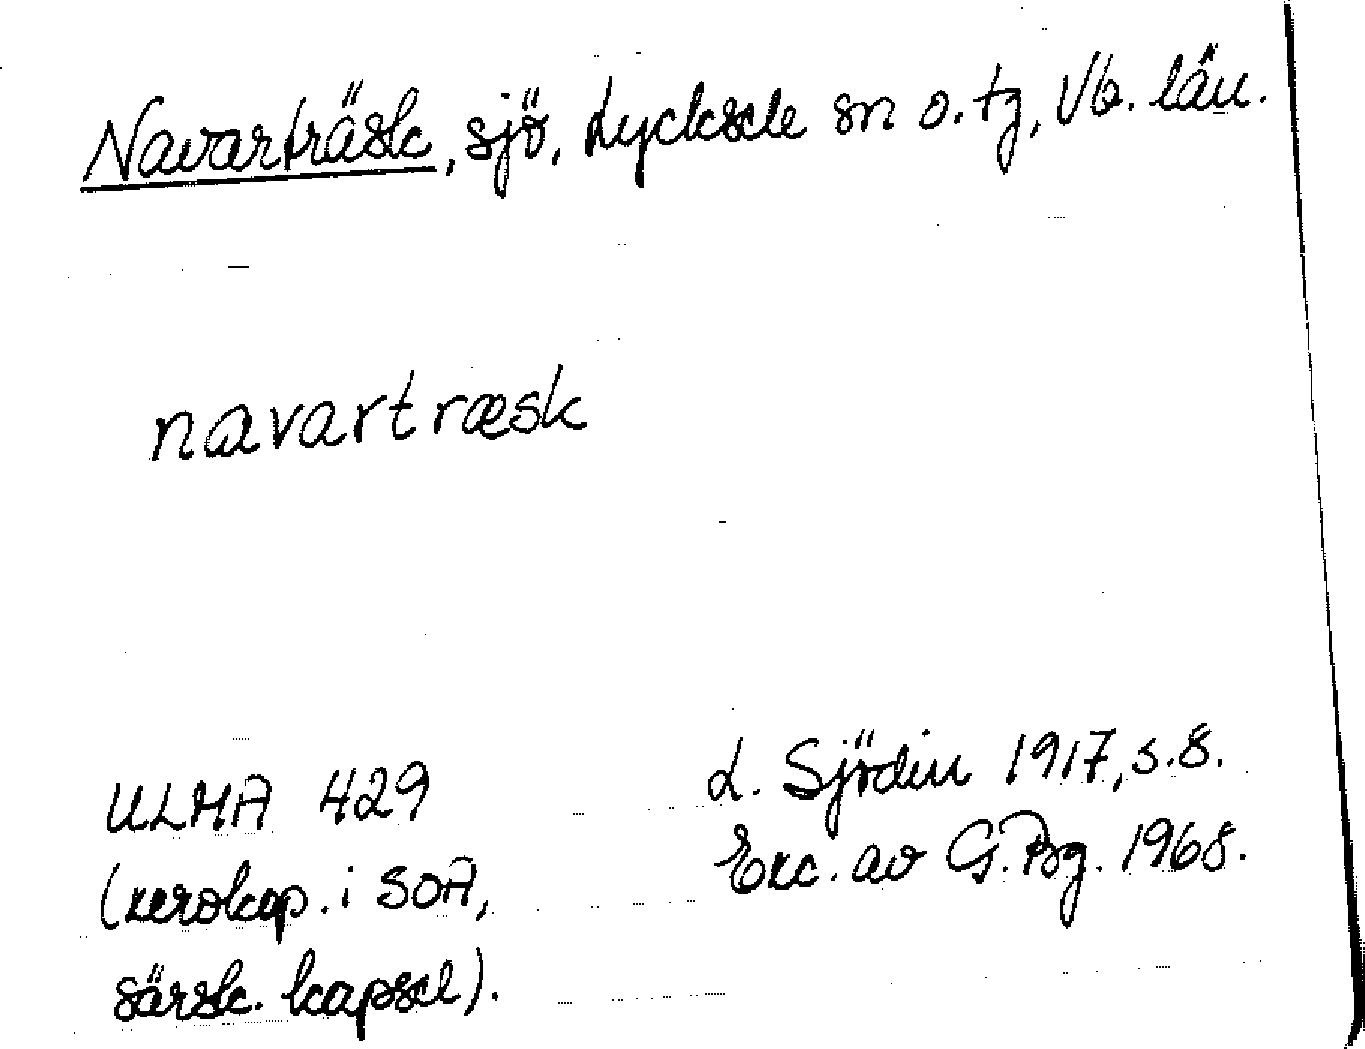 Navarträsk, sjö, Lycksele sn o. tg, Vb. län.
navartræsk
ULMA 429
(xerokop. i SOA,
särsk. kapsel).
L. Sjödin 1917, s. 8.
Exc. av G. Bg. 1968.